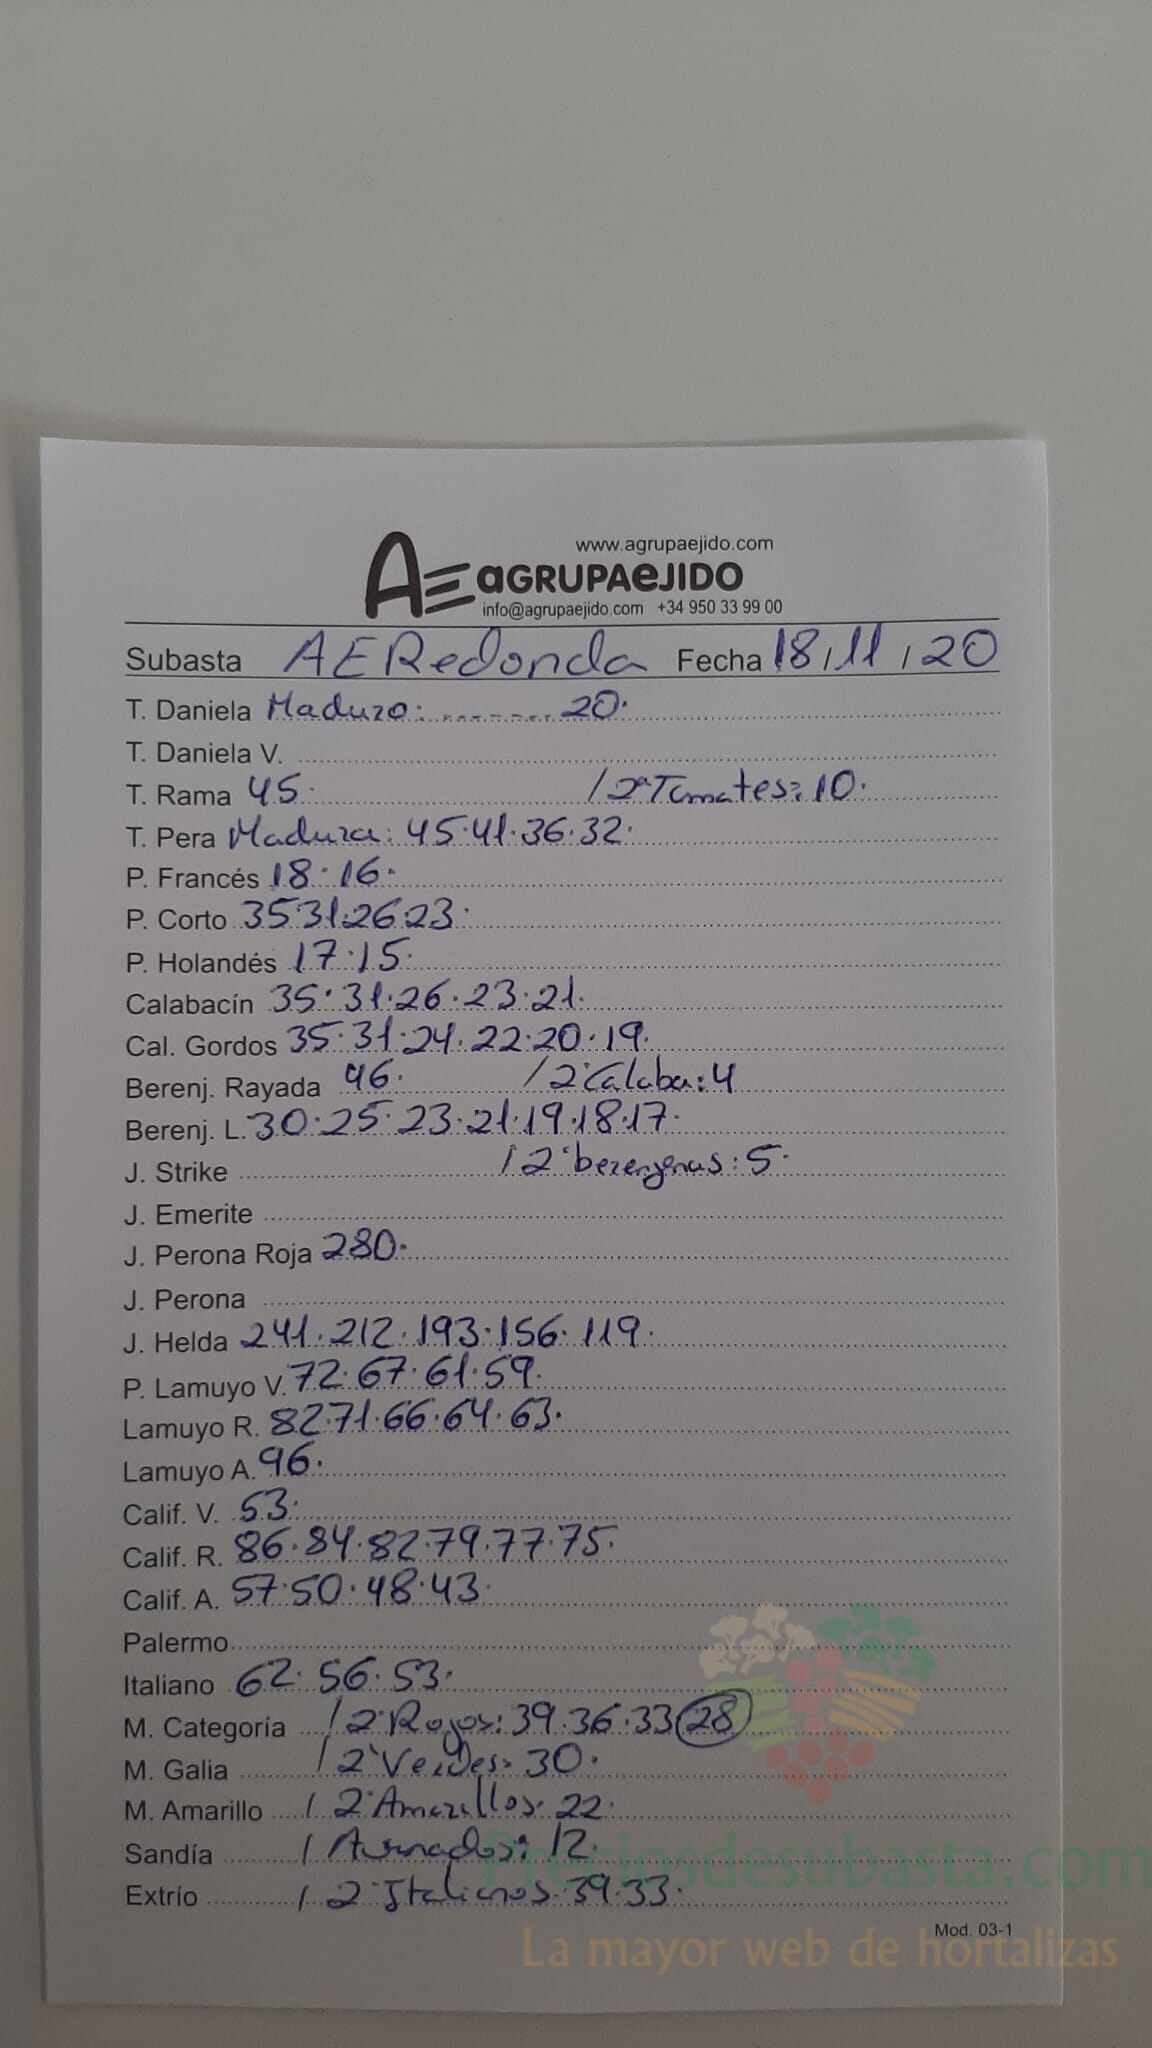 www.agrupaejido.com
AE AGRUPAEJIDO
info@agrupaejido.com +34 950 33 99 00
Subasta AERedonda Fecha 18/11/20
T. Daniela Maduro: ........ 20.
T. Daniela V.
T. Rama 45. / 2ª Tomates: 10.
T. Pera Madura: 45.41.36.32.
P. Francés 18.16.
P. Corto 35.31.26.23.
P. Holandés 17.15.
Calabacín 35.31.26.23.21.
Cal. Gordos 35.31.24.22.20.19.
Berenj. Rayada 46. / 2ª Calaba: 4
Berenj. L. 30.25.23.21.19.18.17.
J. Strike / 2ª berengenas: 5.
J. Emerite
J. Perona Roja 280.
J. Perona
J. Helda 241.212.193.156.119.
P. Lamuyo V. 72.67.61.59.
Lamuyo R. 82.71.66.64.63.
Lamuyo A. 96.
Calif. V. 53.
Calif. R. 86.84.82.79.77.75.
Calif. A. 57.50.48.43.
Palermo
Italiano 62.56.53.
M. Categoría / 2ª Rojos: 39.36.33 28
M. Galia / 2ª Verdes: 30.
M. Amarillo / 2ª Amarillos: 22.
Sandía / Asurnados: 12.
Extrío / 2ª Italianos: 39.33.
Mod. 03-1
Preciosdesubasta.com
La mayor web de hortalizas